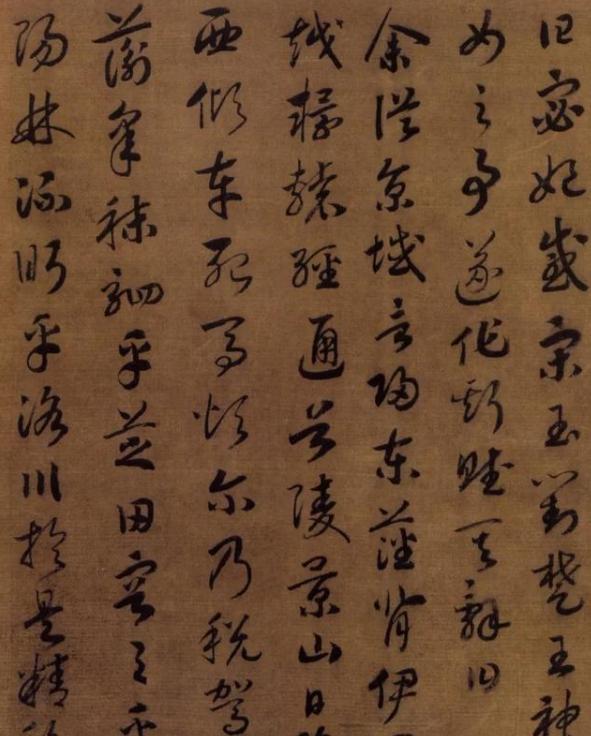 曰宓妃感宋玉對楚王神
女之事遂作斯賦其辭曰
余從京域言歸東藩背伊
越轘轅經通谷陵景山日
西傾車殆馬煩爾乃稅駕
蘅皋秣駟乎芝田容與乎
陽林流眄乎洛川於是精